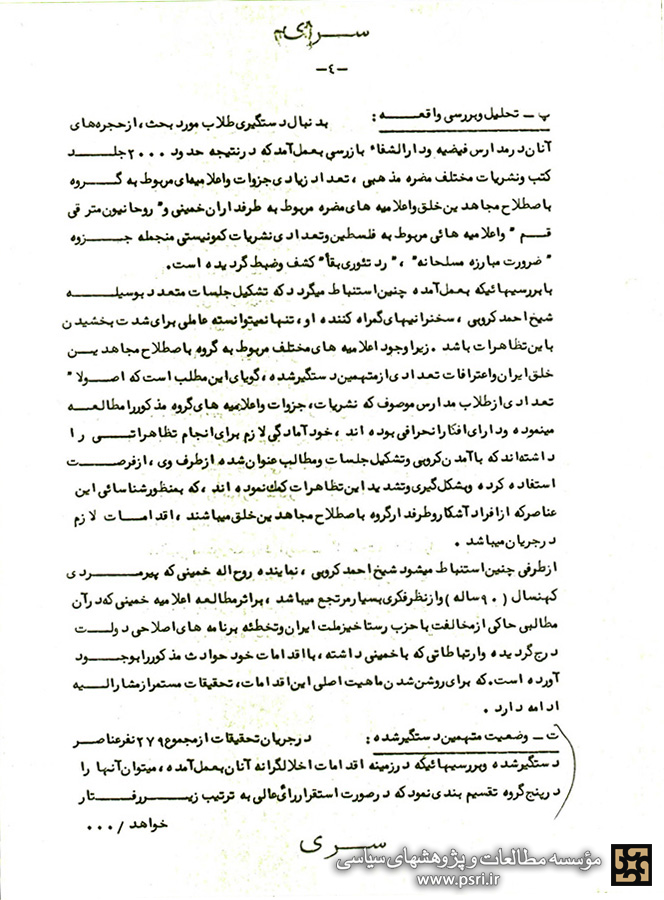 سری
-٤-
پ - تحلیل و بررسی واقعه : بدنبال دستگیری طلاب مورد بحث، از حجره‌های
آنان در مدارس فیضیه و دارالشفاء بازرسی بعمل آمد که در نتیجه حدود ۲۰۰۰ جلد
کتب و نشریات مختلف مضره مذهبی، تعداد زیادی جزوات و اعلامیه‌های مربوط به گروه
باصطلاح مجاهدین خلق و اعلامیه های مضره مربوط به طرفداران خمینی و" روحانیون مترقی
قم " و اعلامیه هائی مربوط به فلسطین و تعدادی نشریات کمونیستی منجمله جزوه
" ضرورت مبارزه مسلحانه" ، " رد تئوری بقاء" کشف و ضبط گردیده است.
با بررسیهائیکه بعمل آمده چنین استنباط میگردد که تشکیل جلسات متعدد بوسیله
شیخ احمد کروبی ، سخنرانیهای گمراه کننده او، تنها نمیتوانسته عاملی برای شدت بخشیدن
باین تظاهرات باشد . زیرا وجود اعلامیه های مختلف مربوط به گروه باصطلاح مجاهدین
خلق ایران و اعترافات تعدادی از متهمین دستگیر شده، گویای این مطلب است که اصولا"
تعدادی از طلاب مدارس موصوف که نشریات، جزوات و اعلامیه های گروه مذکور را مطالعه
مینموده و دارای افکار انحرافی بوده اند ، خود آمادگی لازم برای انجام تظاهراتی را
داشته‌اند که با آمدن کروبی و تشکیل جلسات و مطالب عنوان شده از طرف وی ، از فرصت
استفاده کرده و بشکل گیری و تشدید این تظاهرات کمک نموده اند ، که بمنظور شناسائی این
عناصر که از افراد آشکار و طرفدار گروه باصطلاح مجاهدین خلق میباشند ، اقدامات لازم
در جریان میباشد .
از طرفی چنین استنباط میشود شیخ احمد کروبی ، نماینده روح اله خمینی که پیرمردی
کهنسال ( ۹۰ ساله ) و از نظر فکری بسیار مرتجع میباشد ، بر اثر مطالعه اعلامیه خمینی که در آن
مطالبی حاکی از مخالفت با حزب رستاخیز ملت ایران و تخطئه برنامه های اصلاحی دولت
درج گردیده و ارتباطاتی که با خمینی داشته، با اقدامات خود حوادث مذکور را بوجود
آورده است. که برای روشن شدن ماهیت اصلی این اقدامات، تحقیقات مستمر از مشارالیه
ادامه دارد .
ت - وضعیت متهمین دستگیر شده : در جریان تحقیقات از مجموع ۲۷۹ نفر عناصر
دستگیر شده و بررسیهائیکه در زمینه اقدامات اخلالگرانه آنان بعمل آمده، میتوان آنها را
در پنج گروه تقسیم بندی نمود که در صورت استقرار رأی عالی به ترتیب زیر رفتار
خواهد /۰۰۰
سری
مؤسسه مطالعات و پژوهشهای سیاسی
www.psri.ir